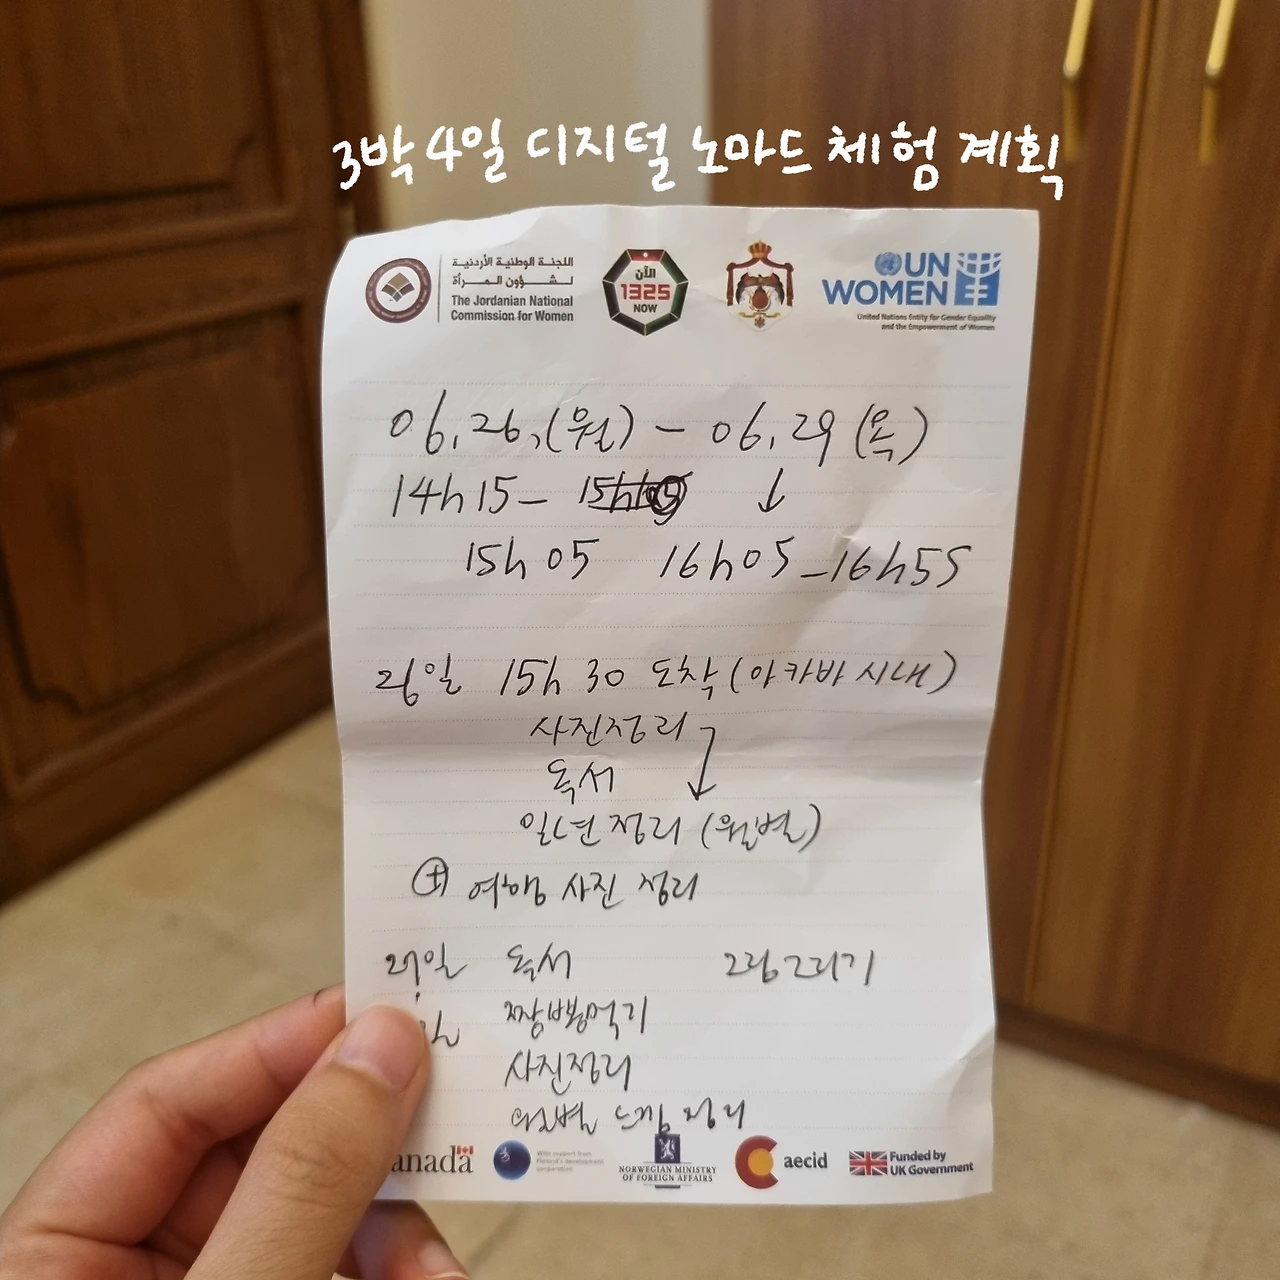 3박4일 디지털 노마드 체험 계획
اللجنة الوطنية الأردنية
لشؤون المرأة
The Jordanian National
Commission for Women
الآن
1325
NOW
UN
WOMEN
United Nations Entity for Gender Equality
and the Empowerment of Women
06.26.(월) - 06.29 (목)
14h15 -
15h05 16h05 - 16h55
26일 15h 30 도착 (아카바 시내)
사진정리
독서
일년 정리 (월별)
+ 여행 사진 정리
27일 독서 그림그리기
일 짬뽕먹기
사진정리
월별 느낌 정리
anada
With support from
Finland's development
cooperation
NORWEGIAN MINISTRY
OF FOREIGN AFFAIRS
aecid
Funded by
UK Government